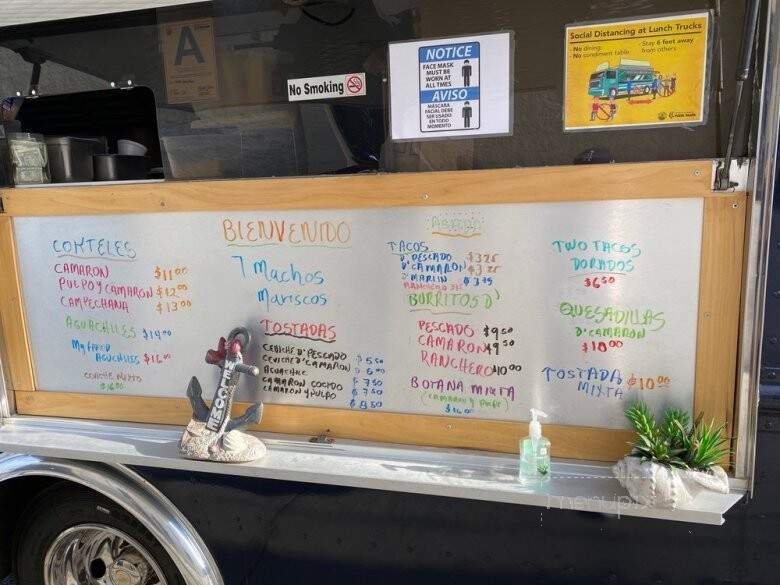 A
No Smoking
NOTICE
FACE MASK
MUST BE
WORN AT
ALL TIMES
AVISO
MÁSCARA
FACIAL DEBE
SER USADO
EN TODO
MOMENTO
Social Distancing at Lunch Trucks
- No dining.
- No condiment table.
- Stay 6 feet away
from others.
COKTELES
CAMARON $11.00
PULPO Y CAMARON $12.00
CAMPECHANA $13.00
AGUACHILES $14.00
AGUCHILES $16.00
CEVICHE MIXTO
$16.00
BIENVENIDO
7 Machos
Mariscos
TOSTADAS
CEVICHE D' PESCADO $5.50
CEVICHE D' CAMARON $6.00
AGUACHILE $7.50
CAMARON COCIDO $7.50
CAMARON Y PULPO $8.50
ABIERTO
TACOS
D' PESCADO $3.25
D' CAMARON $3.25
D' MARLIN $3.75
RANCHERO
BURRITOS D'
PESCADO $9.50
CAMARON $9.50
RANCHERO $10.00
BOTANA MIXTA
(CAMARON Y PULPO)
$16.00
TWO TACOS
DORADOS
$6.50
QUESADILLAS
D' CAMARON
$10.00
TOSTADA $10.00
MIXTA
WELCOME
menupix